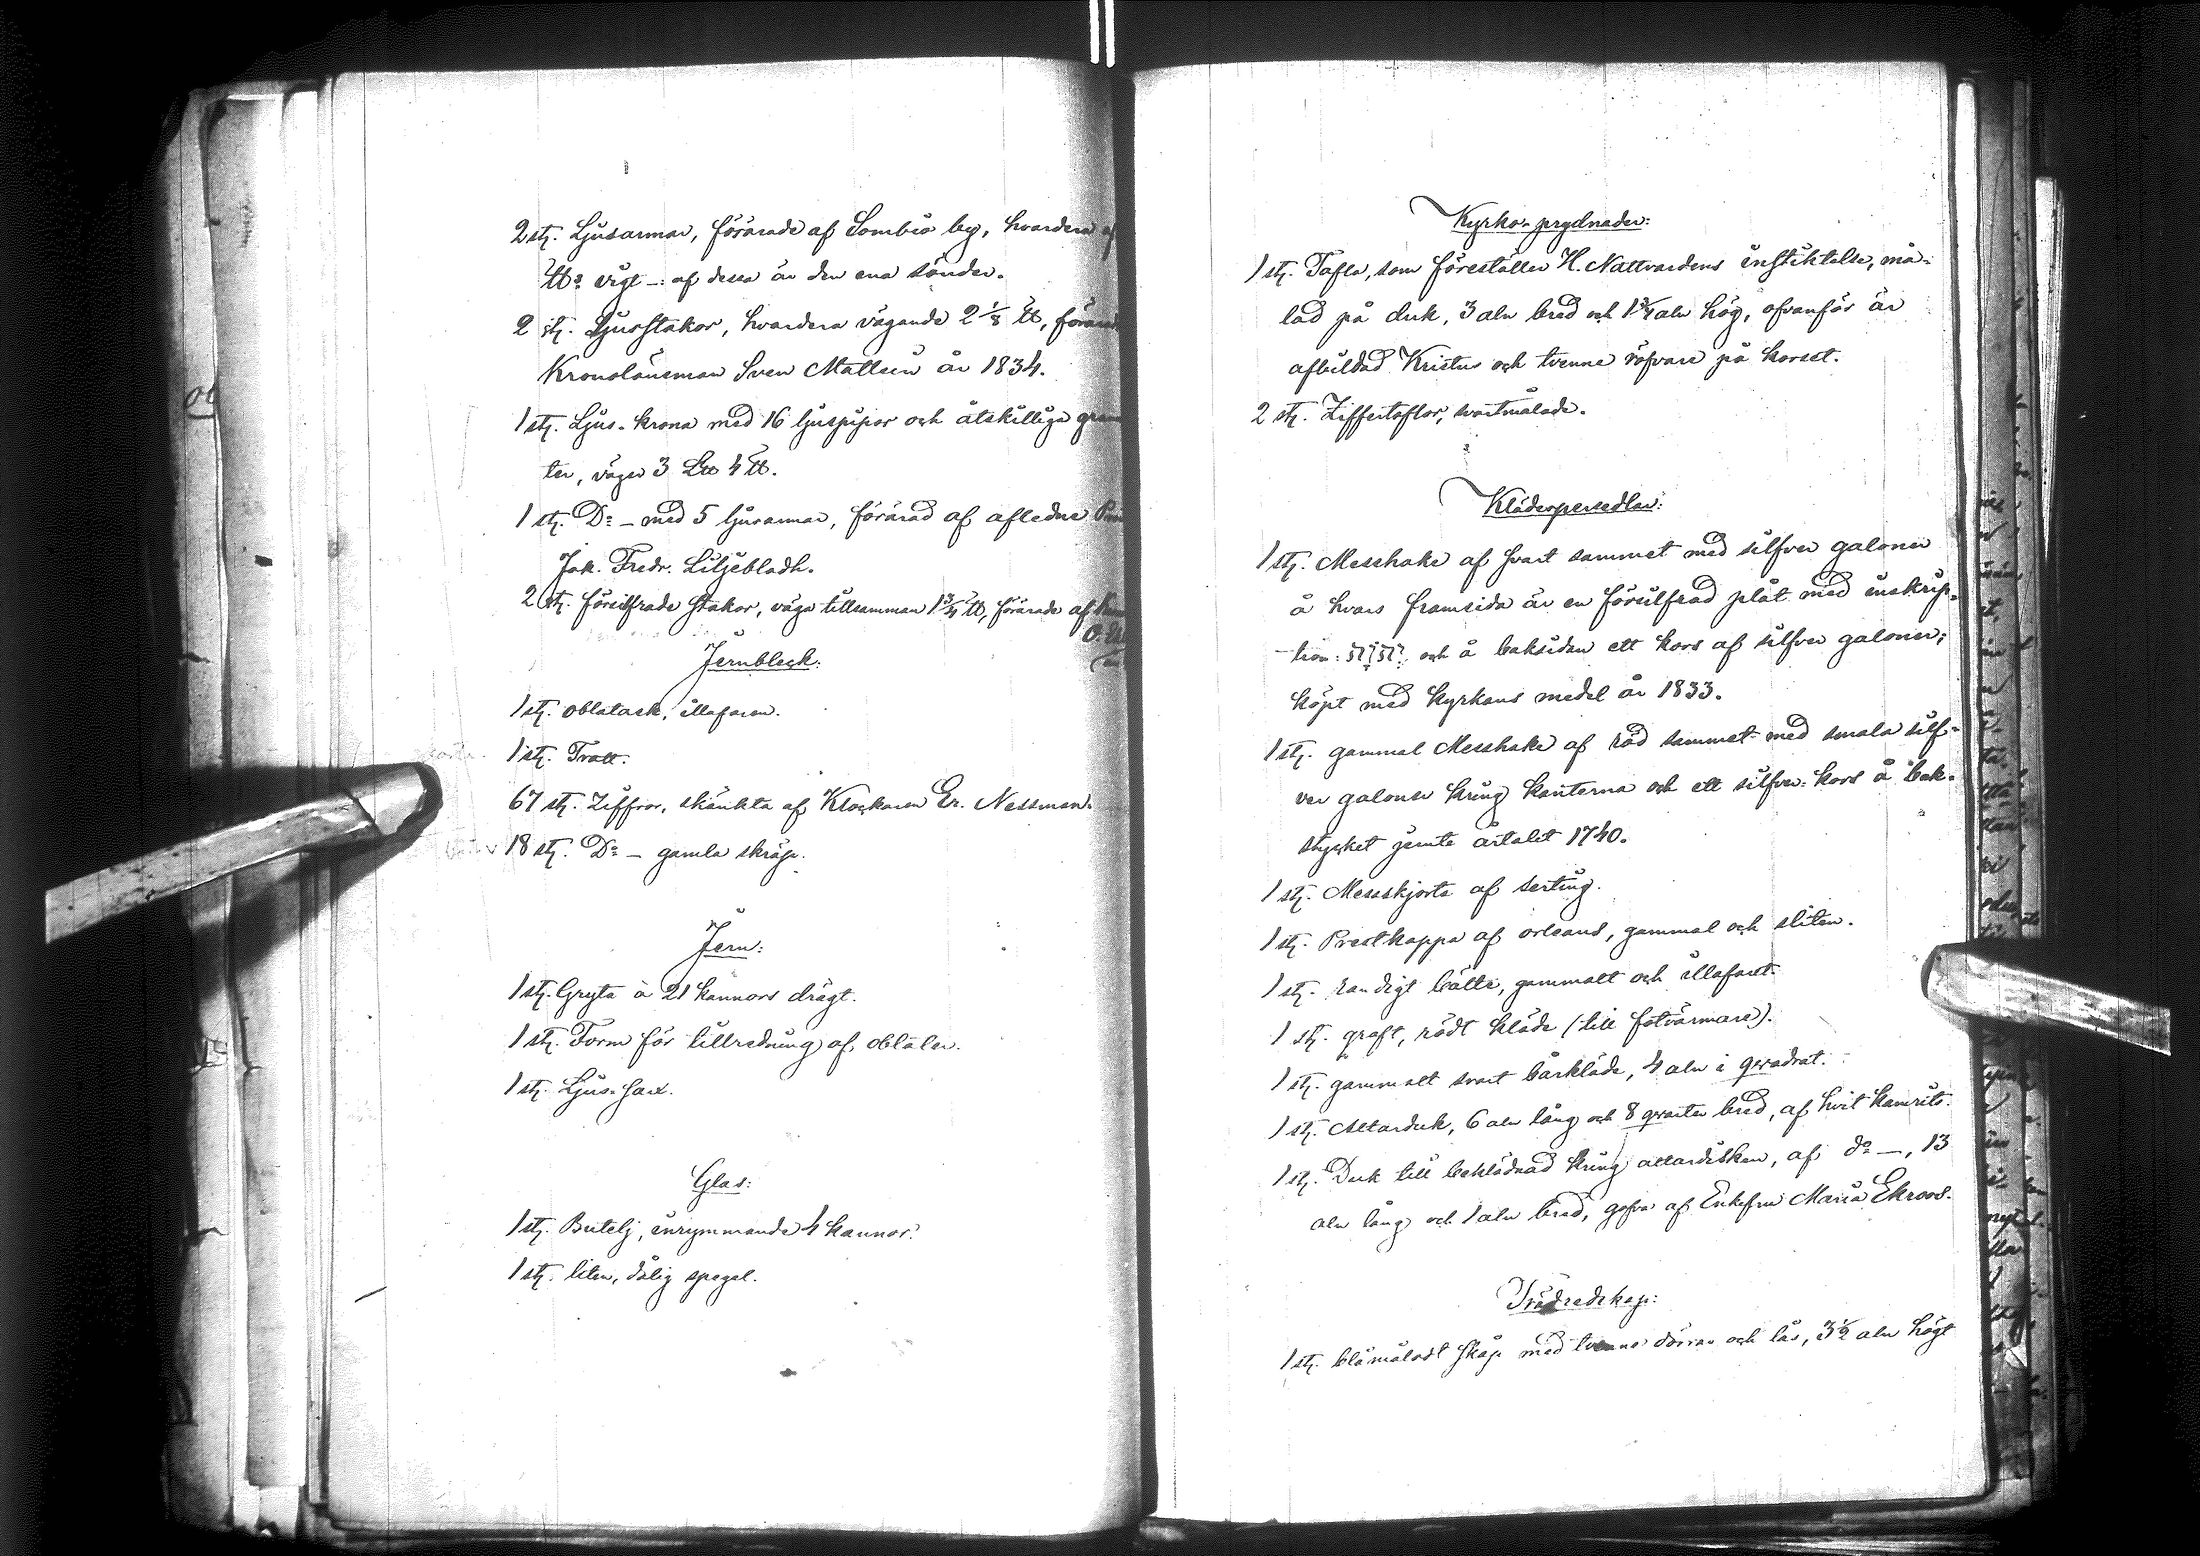 2 st. Ljusarmar, förärade af Sombio by, hvardera af
℔s vigt –: af dessa är den ena sönder.
2 st. Ljusstakar, hvardera vägande 2 1/8 ℔, förärade
Kronolänsman Sven Mattsén år 1834.
1 st. Ljus-krona med 16 ljuspipor och åtskilliga
ter, väger 3 L℔ 4 ℔.
1 st. Do – med 5 ljusarmar, förärad af afledne
Jak. Fredr. Liljebladh.
2 st. försilfrade stakar, väga tillsamman 1 3/4 ℔, förärade af
Jernbleck:
1 st. oblatask, illafaren.
1 st. Tratt.
67 st. Ziffror, skänkta af Klockaren Er. Nessman.
18 st. Do – gamla skräp.
Jern:
1 st. Gryta à 21 kannors drägt.
1 st. Form för tillredning af oblater.
1 st. Ljus-sax.
Glas:
1 st. Butelj, inrymmande 4 kannor.
1 st. liten, dålig spegel.
Kyrko-prydnader:
1 st. Tafla, som föreställer H. Nattvardens instiktelse, må-
lad på duk, 3 aln bred och 1 3/4 aln hög, ofvanför är
afbildad Kristus och tvenne röfvare på korset.
2 st. Ziffertaflor, svartmålade.
Klädespersedlar:
1 st. Messhake af svart sammet med silfver galoner
å hvars framsida är en försilfrad plåt med inskrip-
tion: och å baksidan ett kors af silfver galoner;
köpt med kyrkans medel år 1833.
1 st. gammal Messhake af röd sammet med smala silf-
ver galoner kring kanterna och ett silfver-kors å bak-
stycket jemte årtalet 1740.
1 st. Messskjorta af serting.
1 st. Prestkappa af orleans, gammal och sliten.
1 st. randigt bälte, gammalt och illafaret.
1 st. groft, rödt kläde (till fotvärmare).
1 st. gammalt svart bårkläde, 4 aln i qvadrat.
1 st. Altarduk, 6 aln lång och 8 qvarter bred, af hvit kamrits.
1 st. Duk till beklädnad kring altardisken, af do –, 13
aln lång och 1 aln bred, gåfva af Enkefru Maria Ekroos.
Trädredskap:
1 st. blåmåladt skåp med tvenne dörrar och lås, 3 1/2 aln högt